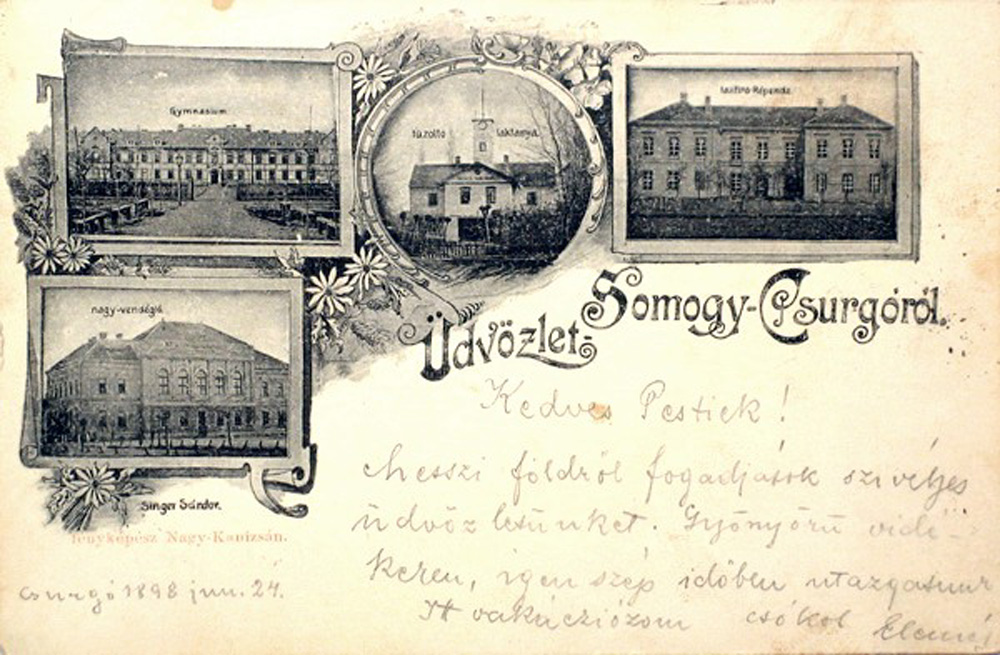 Gymnasium
tűzoltó laktanya
tanitró-képende
nagy-vendéglő
Üdvözlet-Somogy-Csurgóról.
Kedves Pestiek!
Messzi földről fogadjátok szivélyes
üdvözletünket. Gyönyörű vidé-
keken, igen szép időben utazgatunk
Itt vakácziózom csókol
Singer Sándor.
fényképész Nagy-Kanizsán.
Csurgó 1898 jun. 24.